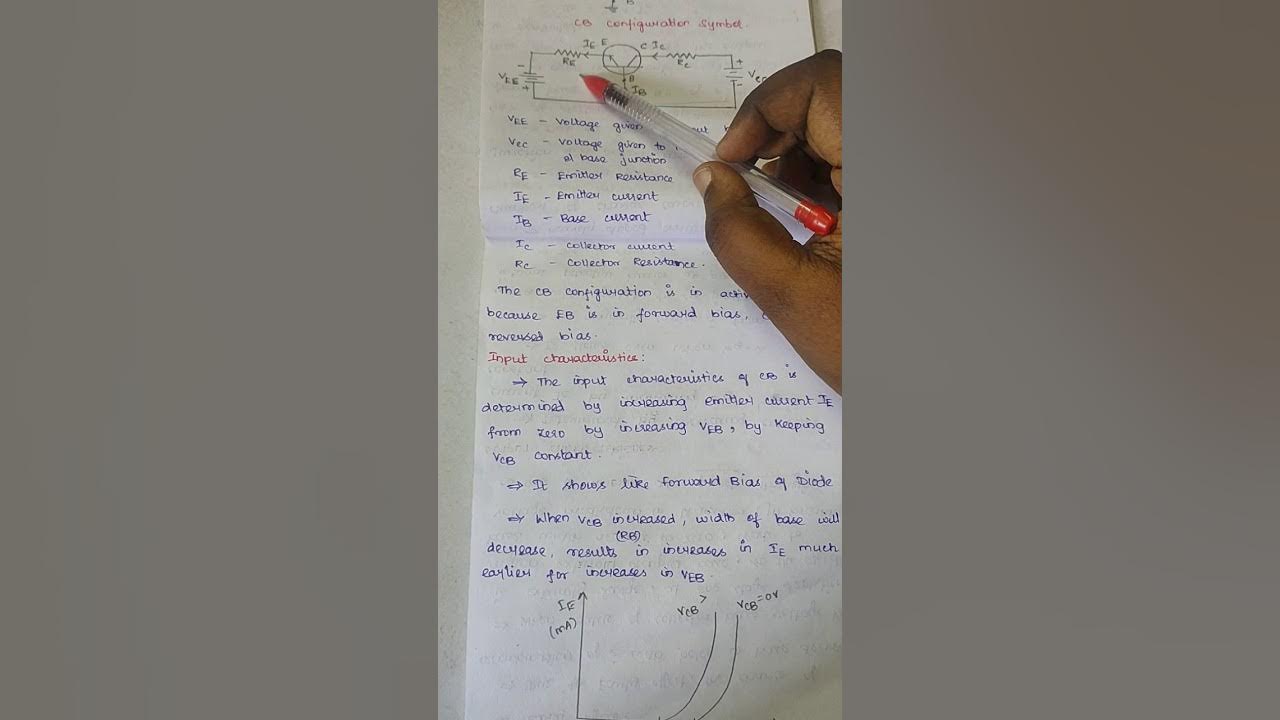 B
CB configuration symbol.
IE E C Ic
RE Rc
- + VEE + - Vcc
B
IB
VEE - Voltage given
Vcc - Voltage given to
of base junction
RE - Emitter Resistance
IE - Emitter current
IB - Base current
Ic - collector current
Rc - collector Resistance.
The CB configuration is in
because EB is in forward bias,
reversed bias.
Input characteristics:
⇒ The input characteristics of CB is
determined by increasing emitter current IE
from zero by increasing VEB, by keeping
VCB constant.
⇒ It shows like forward Bias of Diode
⇒ When VCB increased, width of base will
(RB)
decrease, results in increases in IE much
earlier for increases in VEB.
IE VCB > VCB=0V
(mA)